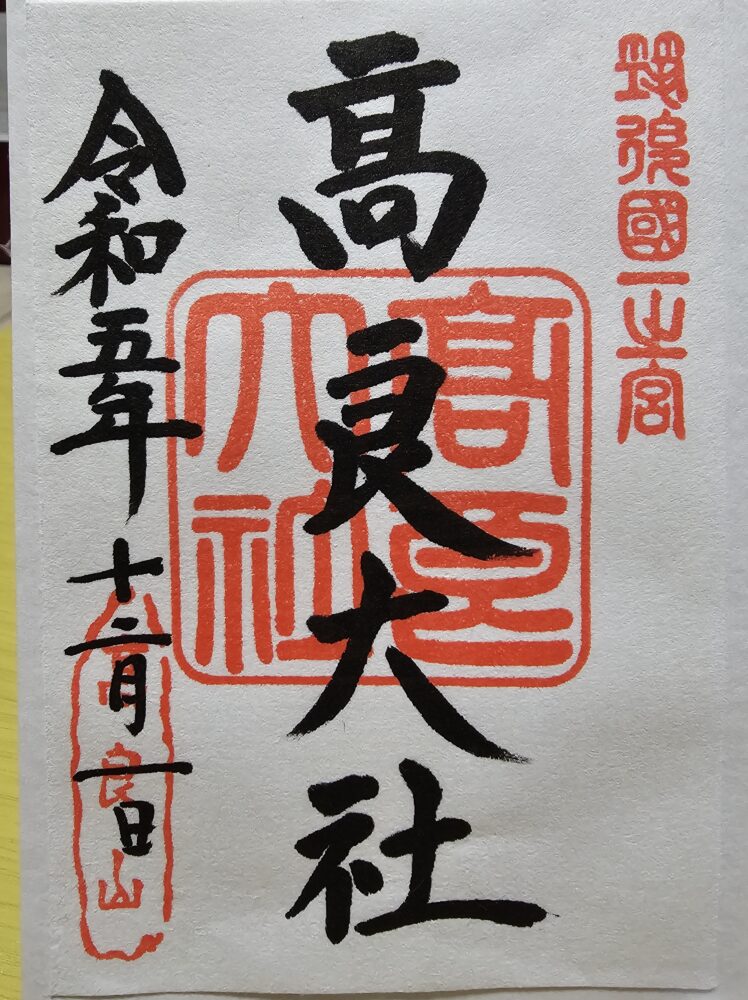 筑後國一之宮
高良大社
高良
大社
令和五年十二月一日
高良山